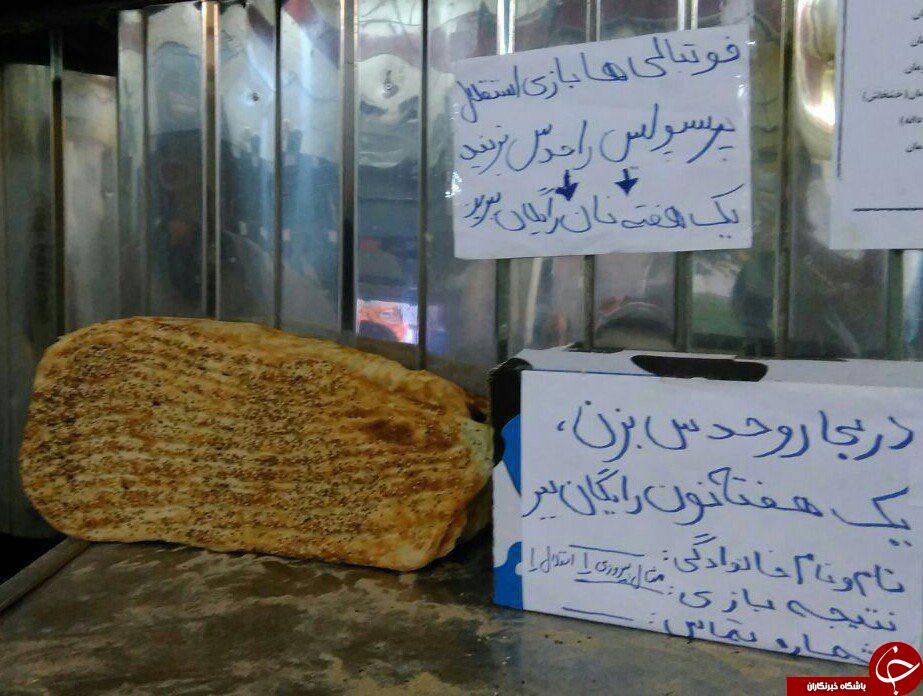 فوتبالی ها بازی استقلال
پرسپولیس را حدس بزنید
یک هفته نان رایگان ببرید
دربی رو حدس بزن،
یک هفته نون رایگان ببر
نام و نام خانوادگی:
نتیجه بازی:
شماره تماس:
باشگاه خبرنگاران